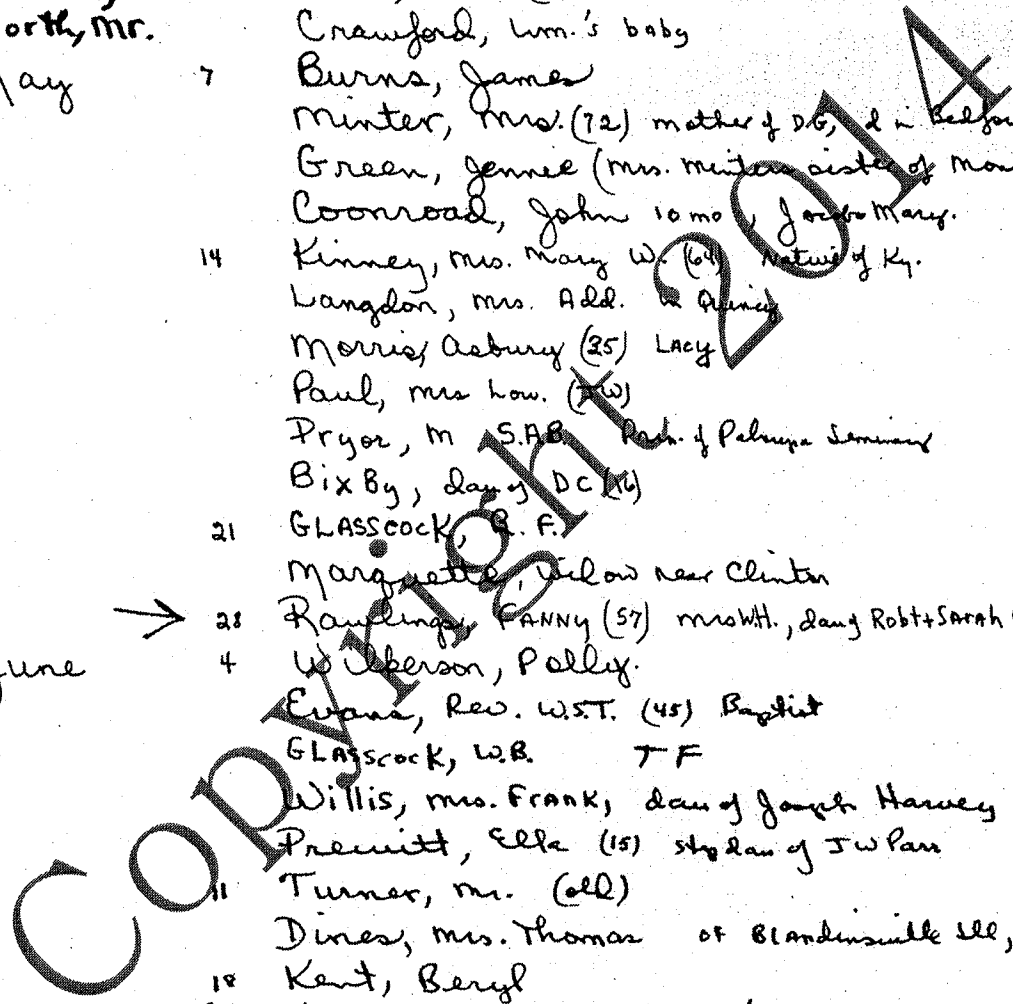 orth, Mr.
Crawford, Wm.'s baby
May 7 Burns, James
Minter, Mrs. (72) mother of DG, d in Bedford
Green, Jennie (Mrs. Minters sister of Mon
Coonroad, John 10 mo, Jacob+Mary.
14 Kinney, Mrs. Mary W. (64) Native of Ky.
Langdon, Mrs. Add. in Quincy
Morris, Asbury (35) LACY
Paul, Mrs Low.
Pryor, M S.AB of Palmyra Seminary
BixBy, dau of DC (16)
21 GLASSCOCK, R. F.
Marquette, widow near Clinton
→ 28 Rawlings, FANNY (57) Mrs WH., dau of Robt+SARAH (
June 4 Wilkerson, Polly.
Evans, Rev. W.S.T. (45) Baptist
GLASSCOCK, W.B. TF
Willis, Mrs. FRANK, dau of Joseph Harvey
Prewitt, Ella (15) stepdau of JW Parr
11 Turner, Mr. (old)
Dines, Mrs. Thomas OF Blandinsville Ill,
18 Kent, Beryl
Copyright 2014